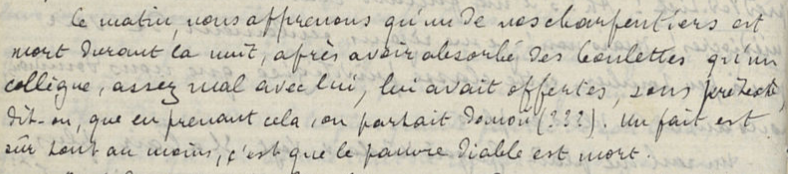 Ce matin, nous apprenons qu'un de nos charpentiers est
mort durant la nuit, après avoir absorbé des boulettes qu'un
collègue, assez mal avec lui, lui avait offertes, sous prétexte,
dit-on, que en prenant cela, on partait (???). Un fait est
sûr tout au moins, c'est que le pauvre diable est mort.